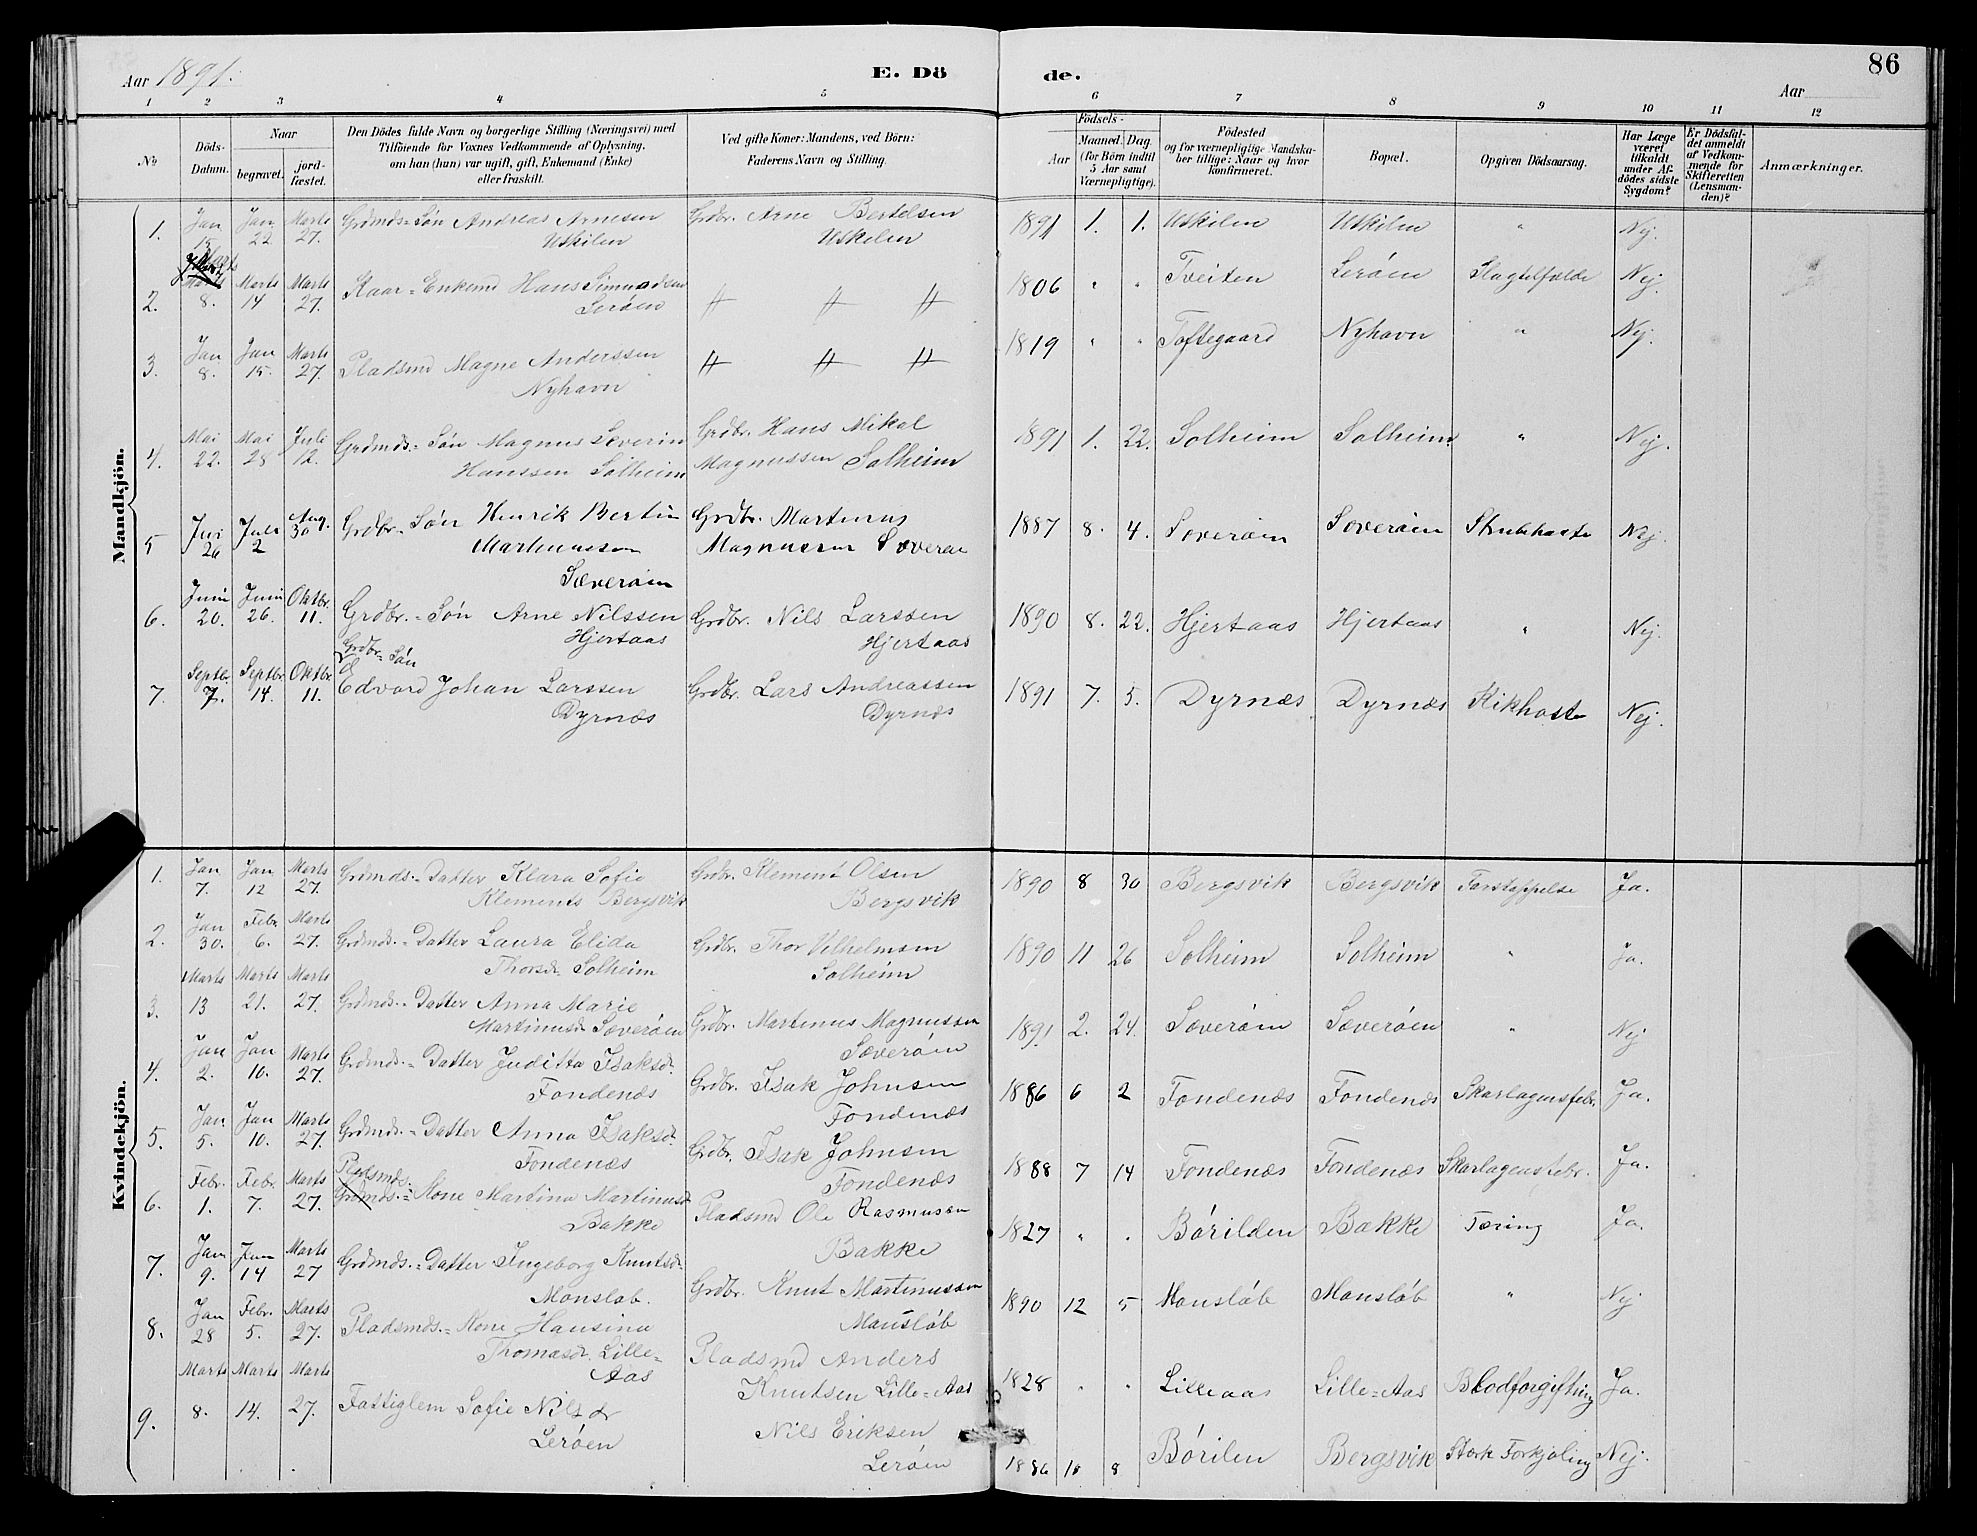 86
Aar 1891.
E. Dö de.
Aar
1 2 3 4 5 6 7 8 9 10 11 12
No
Döds-Datum.
Naar
begravet.
jord-fæstet.
Den Dödes fulde Navn og borgerlige Stilling (Næringsvei) med
Tilföiende for Voxnes Vedkommende af Oplysning,
om han (hun) var ugift, gift, Enkemand (Enke)
eller fraskilt.
Ved gifte Koner: Mandens, ved Börn:
Faderens Navn og Stilling.
Födsels-
Aar
Maaned. Dag.
(for Börn indtil
5 Aar samt
Værnepligtige).
Födested
og for værnepligtige Mandska-
ber tillige: Naar og hvor
konfirmeret.
Bopæl.
Opgiven Dödsaarsag.
Har Læge
været
tilkaldt
under Af-
dödes sidste
Sygdom?
Er Dödsfal-
det anmeldt
af Vedkom-
mende for
Skifteretten
(Lensman-
den)?
Anmærkninger.
Mandkjön.
1. Jan 15 Jan 22 Marts 27. Grdmds.=Sön Andreas Arnesen Uskilen Grdbr. Arne Bertelsen Uskilen 1891 1. 1. Uskilen Uskilen " Nej.
2. Marts 8. Marts 14 Marts 27. Kaar=Enkemd Hans Simundsen Leröen # # # 1806 " " Tveiten Leröen Slagtilfælde Nej.
3. Jan 8. Jan 15. Marts 27. Pladsmd Magne Anderssen Nyhavn # # # 1819 " " Toftegaard Nyhavn " Nej.
4. Mai 22. Mai 28 Juli 12. Grdmds.=Sön Magnus Severin Hanssen Solheim Grdbr. Hans Mikal Magnussen Solheim 1891 1. 22. Solheim Solheim " Nej.
5 Juni 26 Juli 2 Aug. 30 Grdbr.-Sön Henrik Bertin Martinussen Sæveröen Grdbr. Martinus Magnussen Sæveröen 1887 8. 4. Sæveröen Sæveröen Strubehoste Nej.
6. Juni 20. Juni 26. Oktbr. 11. Grdbr.=Sön Arne Nilssen Hjertaas Grdbr. Nils Larssen Hjertaas 1890 8. 22. Hjertaas Hjertaas " Nej.
7. Septbr. 7. Septbr. 14. Oktbr. 11. Grdbr=Sön Edvard Johan Larssen Dyrnæs Grdbr. Lars Andreassen Dyrnæs 1891 7. 5. Dyrnæs Dyrnæs Kikhoste Nej.
Kvindekjön.
1. Jan 7. Jan 12 Marts 27. Grdmds.=Datter Klara Sofie Klements Bergsvik Grdbr. Klement Olsen Bergsvik 1890 8 30 Bergsvik Bergsvik Ja.
2. Jan 30. Febr. 6. Marts 27. Grdmds.=Datter Laura Elida Thorsdr. Solheim Grdbr. Thor Vilhelmsen Solheim 1890 11 26 Solheim Solheim " Ja.
3. Marts 13 Marts 21. Marts 27. Grdmds.=Datter Anna Marie Martinusd. Sæveröen Grdbr. Martinus Magnussen Sæveröen 1891 2. 24. Sæveröen Sæveröen " Nej
4. Jan 2. Jan 10. Marts 27. Grdmds.=Datter Juditta Isaksd. Fondenæs Grdbr. Isak Johnsen Fondenæs 1886 6 2 Fondenæs Fondenæs Skarlagensfebr. Ja.
5. Jan 5. Jan 10. Marts 27. Grdmds.=Datter Anna Isaksd. Fondenæs Grdbr. Isak Johnsen Fondenæs 1888 7 14 Fondenæs Fondenæs Skarlagensfebr. Ja.
6. Febr. 1. Febr. 7. Marts 27. Pladsmds. Grdmds.=Kone Martina Martinusd Bakke Pladsmd Ole Rasmussen Bakke 1827 " . Börilden Bakke Tæring Ja.
7. Jan 9. Jan 14 Marts 27 Grdmds.=Datter Ingeborg Knutsd. Monslöb. Grdbr. Knut Martinussen Monslöb 1890 12 5 Monslöb Monslöb " Nej
8. Jan 28 Febr. 5. Marts 27. Pladsmds.=Kone Hansina Thomasdr. Lille=Aas Pladsmd Anders Knutsen Lille=Aas 1828 " " Lilleaas Lille=Aas Blodforgiftning Ja.
9. Marts 8. Marts 14. Marts 27. Fattiglem Sofie Nilsdr Leröen Nils Eriksen Leröen 1886 10 8 Börilen Bergsvik Stærk Forkjöling Nej.